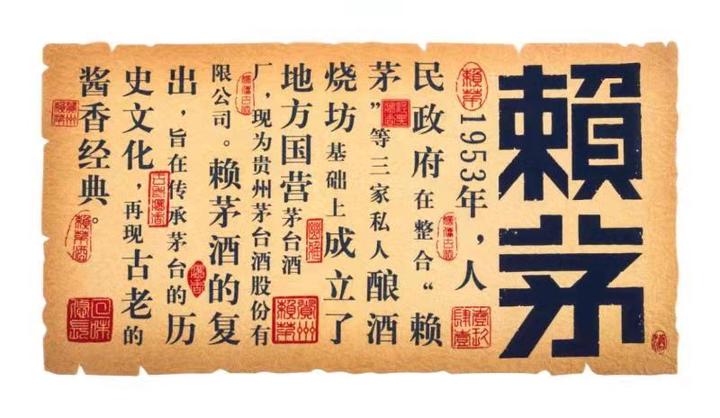 賴茅
1953年，人
民政府在整合“赖
茅”等三家私人酿酒
烧坊基础上成立了
地方国营茅台酒
厂，现为贵州茅台酒股份有
限公司。赖茅酒的复
出，旨在传承茅台的历
史文化，再现古老的
酱香经典。